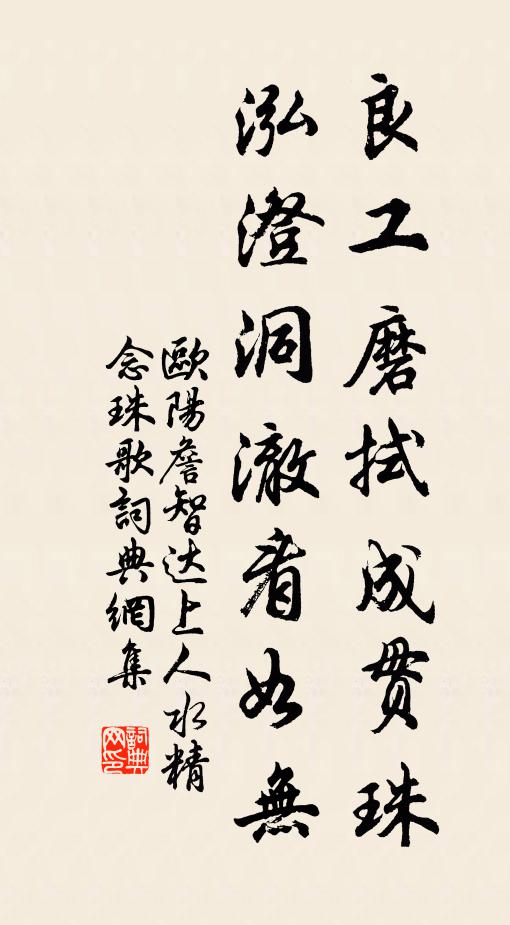 良工磨拭成貫珠
泓澄洞澈看如無
歐陽詹智达上人水精
念珠歌詞典網集
詞典网印